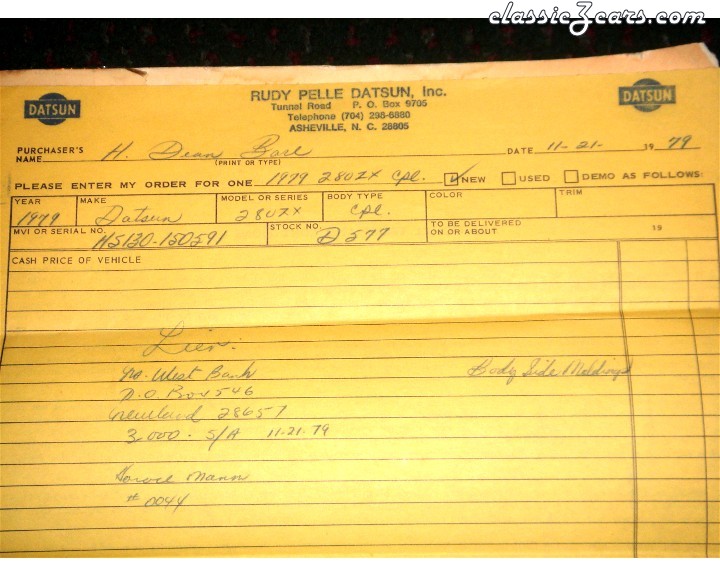 classicZcars.com
DATSUN
RUDY PELLE DATSUN, Inc.
DATSUN
Tunnel Road P. O. Box 9705
Telephone (704) 298-6880
ASHEVILLE, N. C. 28805
PURCHASER'S NAME H. Dean DATE 11-21- 19 79
(PRINT OR TYPE)
PLEASE ENTER MY ORDER FOR ONE 1979 280ZX Cpl. ☑ NEW ☐ USED ☐ DEMO AS FOLLOWS:
YEAR MAKE MODEL OR SERIES BODY TYPE COLOR TRIM
1979 Datsun 280ZX Cpl.
MVI OR SERIAL NO. HS130-150591 STOCK NO. D577 TO BE DELIVERED ON OR ABOUT 19
CASH PRICE OF VEHICLE
Lien:
No. West Bank Body Side Moldings
P.O. Box 546
28657
3,000. S/A 11-21-79
Horace Mann
# 0044